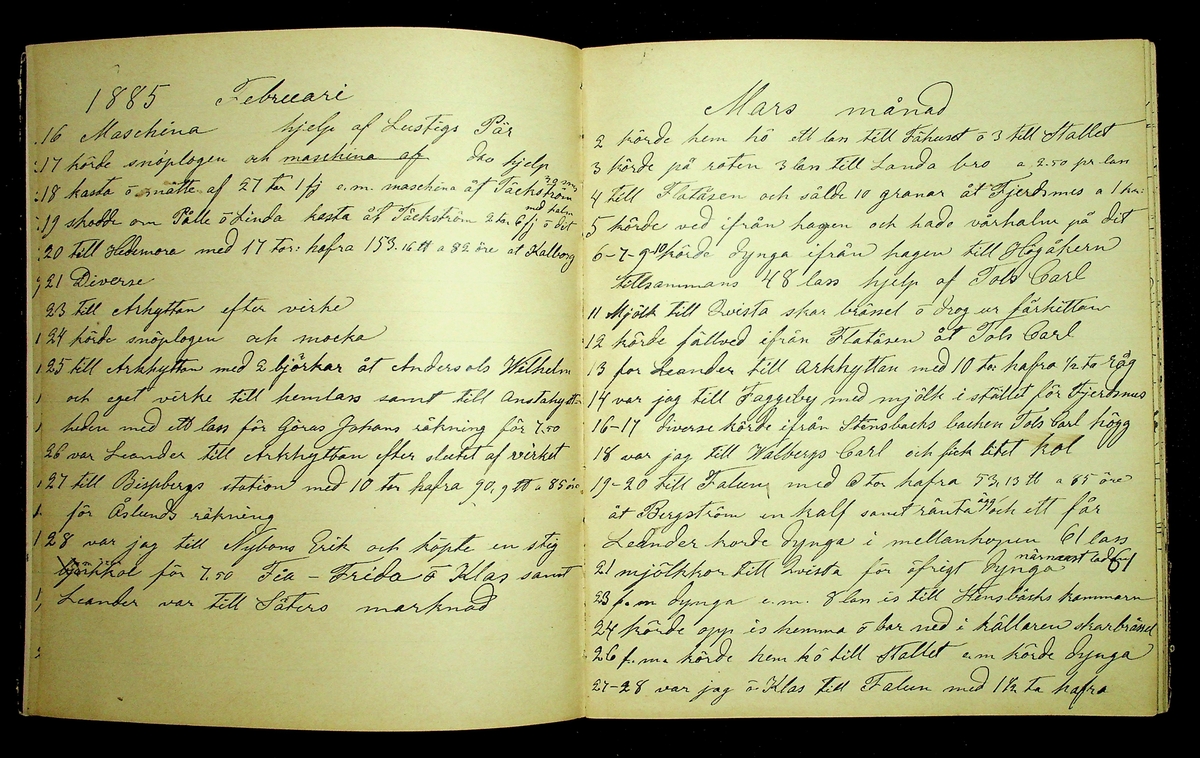 1885 Februari
16 Maschina hjelp af Lustigs Pär
17 körde snöplogen och maschina af dro hjelp
18 kasta ö mätte af 27 tor 1 fj e.m. maschina åt Täckström
19 skodde om Pålle ö linda kasta åt Täckström 2 tor 6 fj ö dit
med halm
20 till Hedemora med 17 tor: hafra 153,16 ℔ a 82 öre at Kalborg
21 Diverse
23 till Arkyttan efter virke
24 körde snöplogen och mocka
25 till Arkhyttan med 2 björkar åt Andersols Wilhelm
och eget virke till hemlass samt till Anstahytte
heden med ett lass för Göras Johans räkning för 7.50
26 var Leander till Arkhyttan efter slutet af virket
27 till Bispbergs station med 10 tor hafra 90,9 ℔ a 85 öre
för Åslunds räkning
28 var jag till Nybons Erik och köpte en stig
kol för 7.50 Fia - Frida ö Klas samt
Leander var till Säters marknad
Mars månad
2 körde hem hö ett lan till Fähuset ö 3 till Stallet
3 körde på roten 3 lan till Landa bro a 2.50 pr lan
4 till Flatåsen och sålde 10 granar åt Fjerdsmus a 1 kr:
5 körde ved ifrån hagen och hade vårhalm på dit
6-7-9-10 körde dynga ifrån hagen till Högåkern
tillsammans 48 lass hjelp af Tols Carl
11 Mjölk till Qvista skar brässel ö drog ur fårkittan
12 körde fällved ifrån Flatåsen åt Tols Carl
13 for Leander till Arkhyttan med 10 tor hafra 1/2 to Råg
14 var jag till Faggeby med mjölk i stället för Fjerdsmus
16-17 diverse körde ifrån Stensbacks backen Tols Carl högg
18 var jag till Walbergs Carl och fick litet kol
19-20 till Falun med 6 tor hafra 53,13 ℔ a 85 öre
åt Bergström en kalf samt ränta ägg och ett får
Leander körde dynga i mellankopen 61 lass
21 mjölkkor till Qvista för öfrigt dynga närmast lad 61
23 f.m dynga e.m. 8 lan is till Stensbacks kammarn
24 körde opp is hemma ö bar ned i källaren skar brässel
26 f.m. körde hem hö till Stallet e.m körde dynga
27-28 var jag ö Klas till Falun med 11/2 to hafra